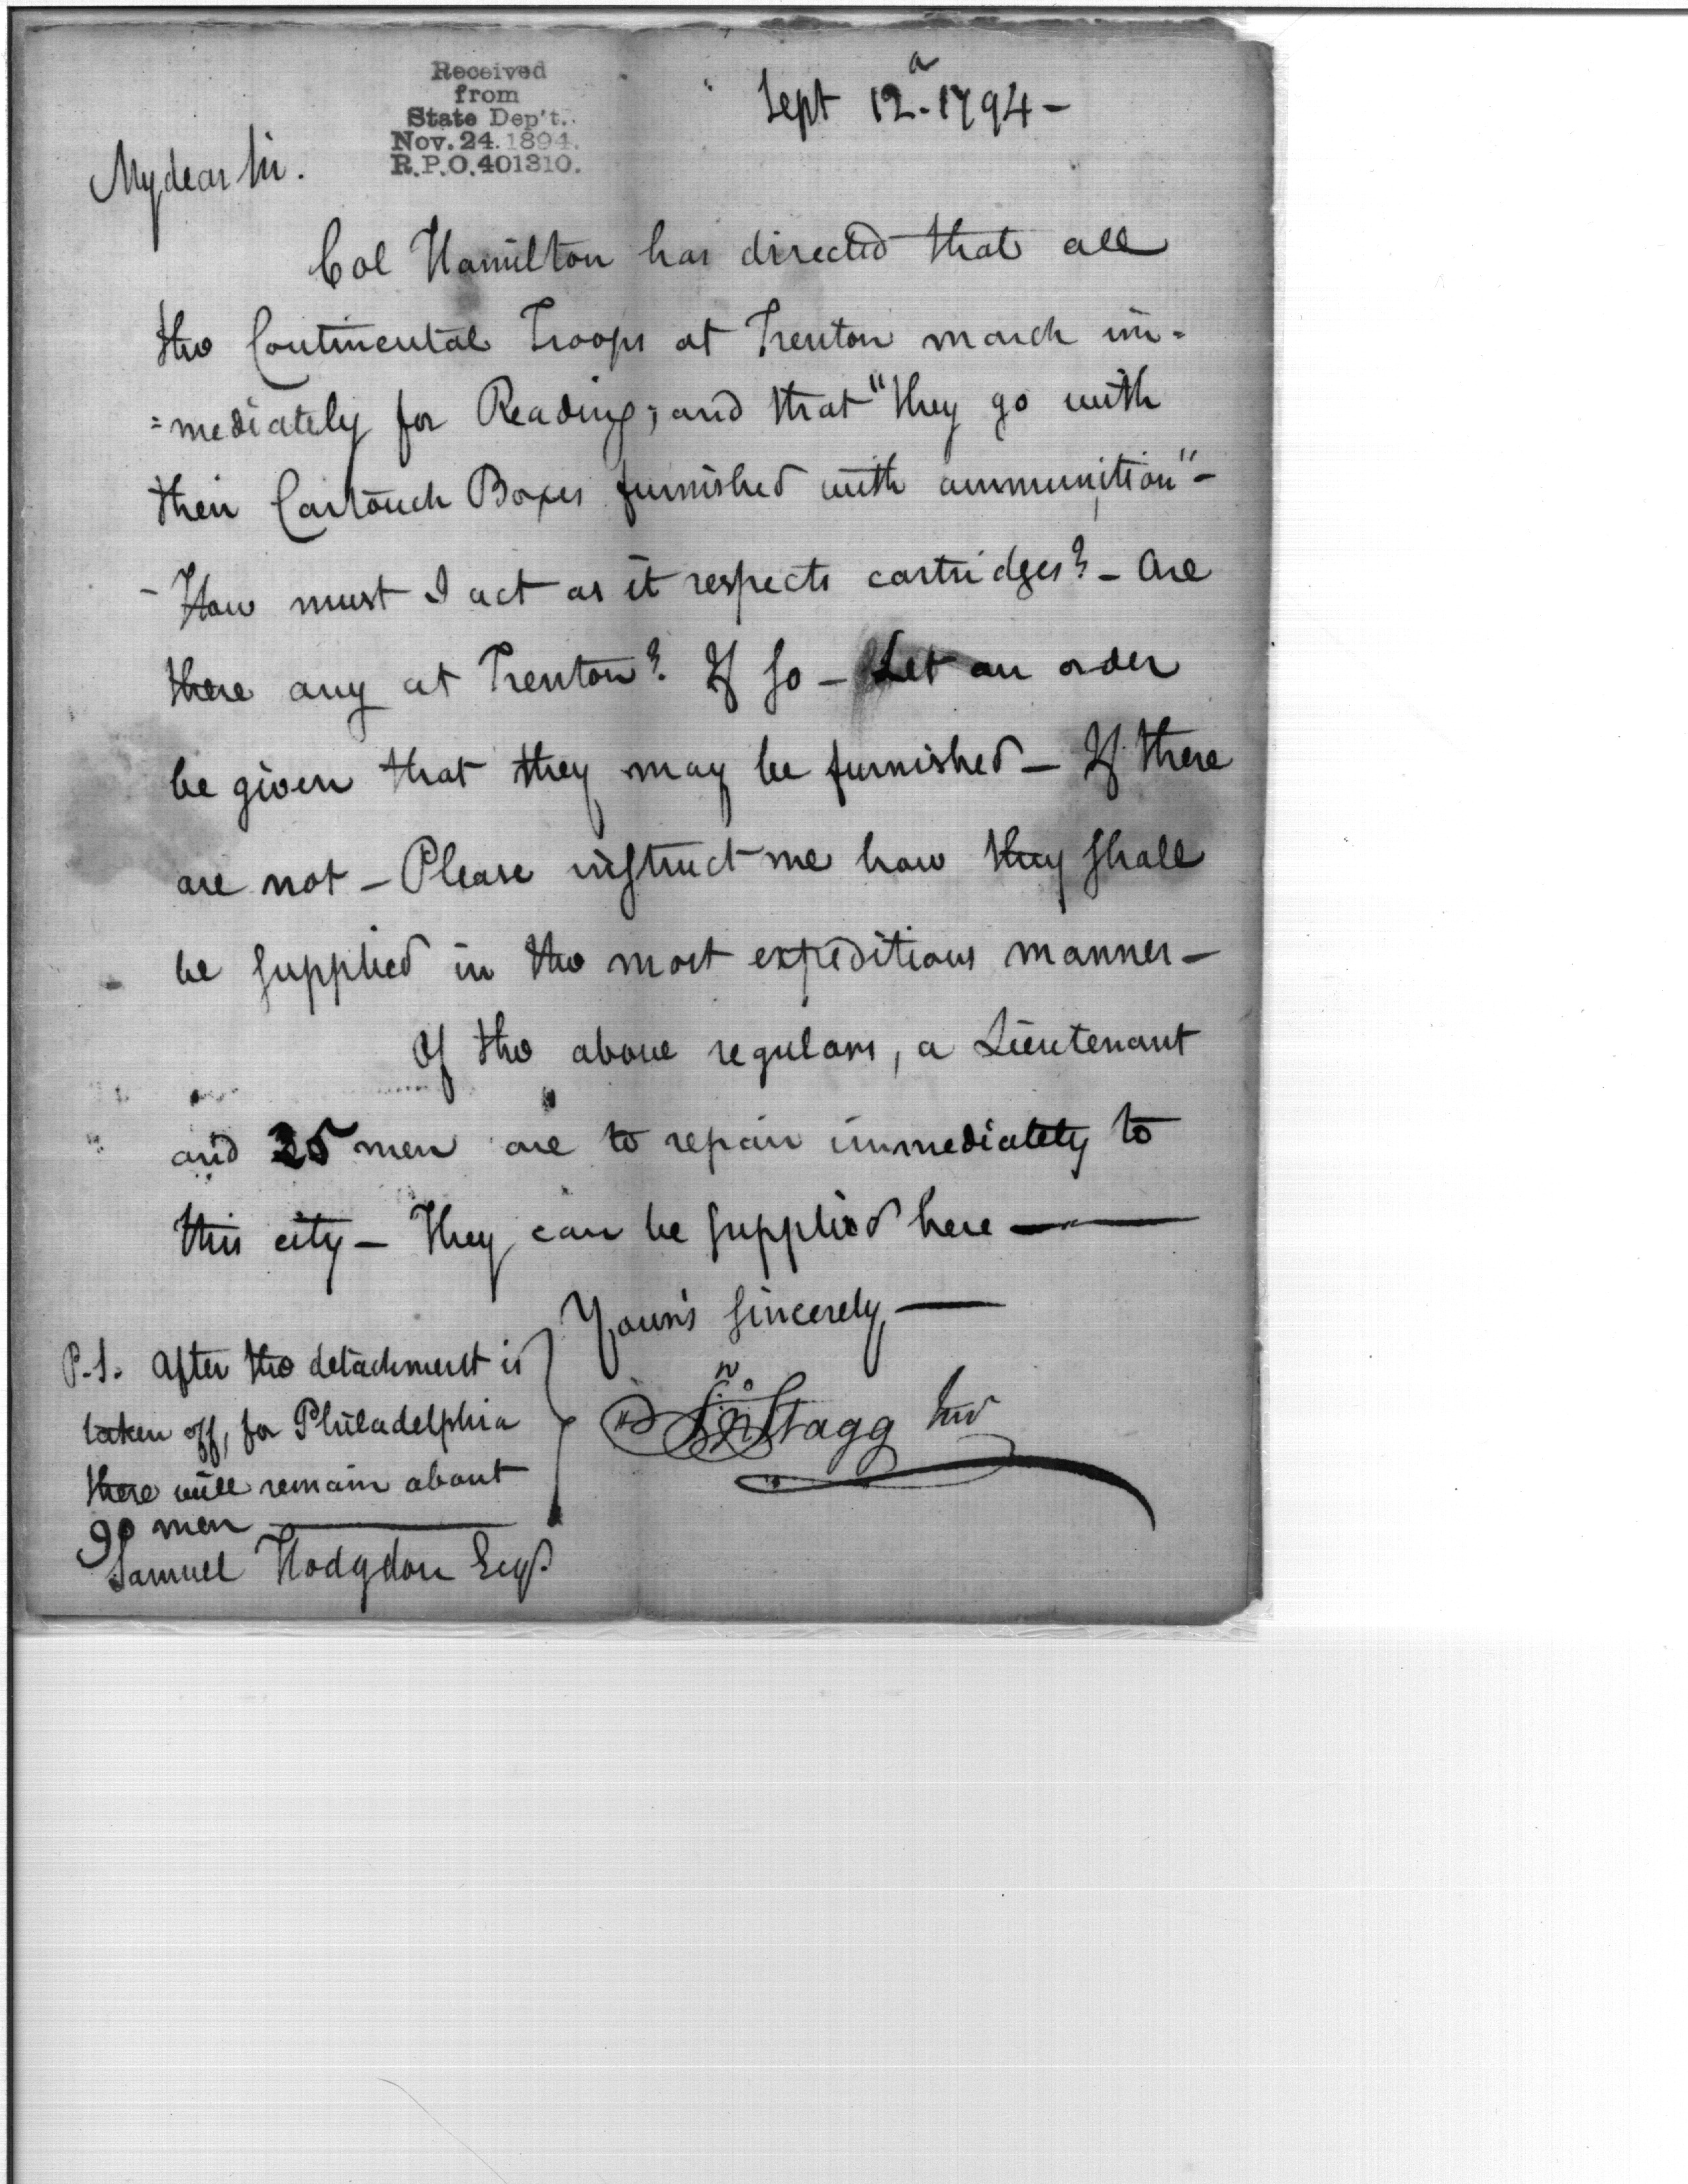 Received
from
State Dep't.
Nov. 24. 1894.
R.P.O. 401310.
Sept 12. 1794 -
My dear Sir.
Col Hamilton has directed that all
the Continental Troops at Trenton march im-
=mediately for Reading; and that "they go with
their Cartouch Boxes furnished with ammunition" -
- How must I act as it respects cartridges? - Are
there any at Trenton? If so - Let an order
be given that they may be furnished - If there
are not - Please instruct me how they shall
be supplied in the most expeditious manner -
Of the above regulars, a Lieutenant
and 35 men are to repair immediately to
this city - They can be supplied here -
Your's sincerely -
Jno Stagg Junr
P.S. After the detachment is
taken off, for Philadelphia
there will remain about
90 men
Samuel Hodgdon Esqr.